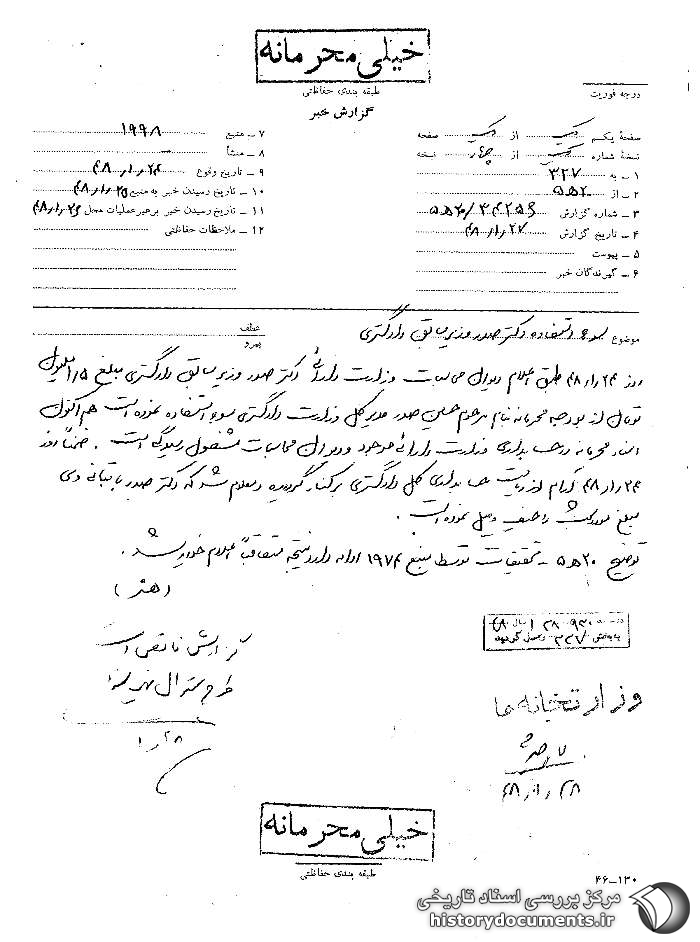 خیلی محرمانه
طبقه بندی حفاظتی
گزارش خبر
درجه فوریت
صفحه یکم یک از یک صفحه
نسخه شماره یک از چهار نسخه
۱ ـ به ۳۲۷
۲ ـ از ۲۰ه۵
۳ ـ شماره گزارش ۲۰ه۵/۳۴۲۵۶
۴ ـ تاریخ گزارش ۲۷ر۱ر۴۸
۵ ـ پیوست
۶ ـ گیرندگان خبر
۷ ـ منبع ۱۹۹۸
۸ ـ منشأ
۹ ـ تاریخ وقوع ۲۴ر۱ر۴۸
۱۰ ـ تاریخ رسیدن خبر به منبع ۲۵ر۱ر۴۸
۱۱ ـ تاریخ رسیدن خبر برهبر عملیات محل ۲۶ر۱ر۴۸
۱۲ ـ ملاحظات حفاظتی
موضوع سوء استفاده دکتر صدر وزیر سابق دادگستری
عطف
پیرو
روز ۲۴ر۱ر۴۸ طبق اعلام دیوان محاسبات وزارت دارائی دکتر صدر وزیر سابق دادگستری مبلغ ۱/۵ ملیون
تومان از بودجه محرمانه بنام مرحوم حسین صدر مدیر کل وزارت دادگستری سوء استفاده نموده است هم اکنون
اسناد محرمانه در حسابداری وزارت دارائی موجود و دیوان محاسبات مشغول رسیدگی است . ضمناً روز
۲۴ر۱ر۴۸ آرام از ریاست حسابداری کل دادگستری برکنار گردیده و معلوم شد که دکتر صدر با تبانی وی
مبلغ را حیف و میل نموده است .
توضیح ۲۰ه۵ ـ تحقیقات توسط منبع ۱۹۷۴ ادامه دارد نتیجه متعاقباً اعلام خواهد شد .
گزارش ناقص است
بخش ۳۲۷ واصل گردید
وزارتخانه ها
۲۸ر۱
۲۸ر۱ر۴۸
خیلی محرمانه
طبقه بندی حفاظتی
۴۶ـ۱۳۰
مرکز بررسی اسناد تاریخی
historydocuments.ir